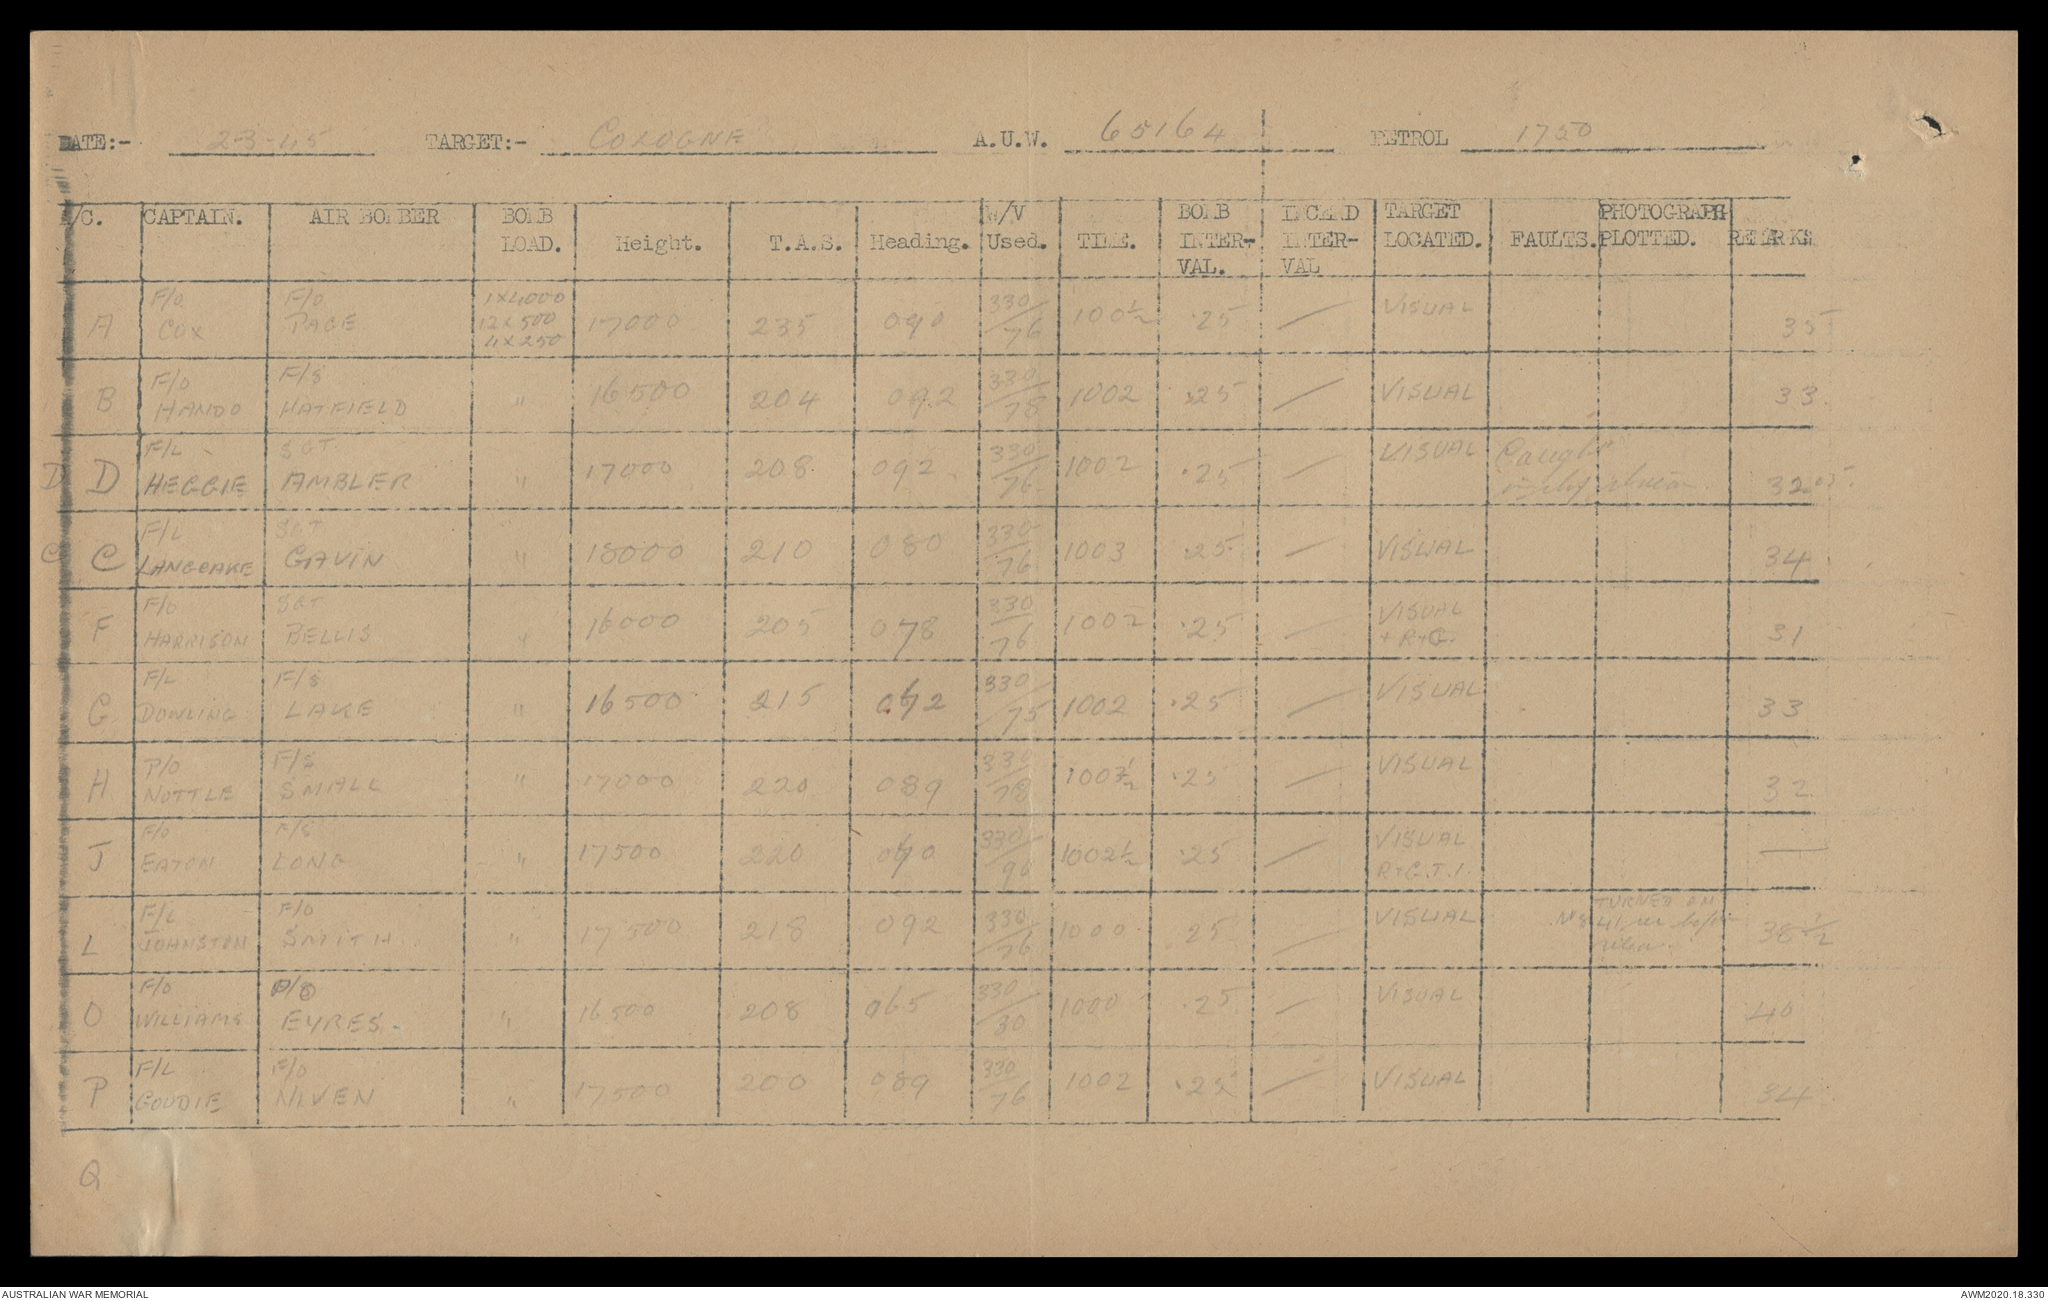 DATE:- 2-3-45 TARGET:- COLOGNE A.U.W. 65164 PETROL 1750
A/C. CAPTAIN. AIR BOMBER BOMB LOAD. Height. T.A.S. Heading. W/V Used. TIME. BOMB INTER-VAL. INCEND INTER-VAL TARGET LOCATED. FAULTS. PHOTOGRAPH PLOTTED. REMARKS
A F/O COX F/O PAGE 1x4000 12x500 4x250 17000 235 090 330/76 100½ .25 / VISUAL 35
B F/O HANDO F/S HATFIELD " 16500 204 092 330/78 1002 .25 / VISUAL 33
D D F/L HEGGIE SGT AMBLER " 17000 208 092 330/76 1002 .25 / VISUAL Caught in slip stream 32
C C F/L LANGCAKE SGT GAVIN " 18000 210 080 330/76 1003 .25 / VISUAL 34
F F/O HARRISON SGT BELLIS " 16000 205 078 330/76 1002 .25 / VISUAL + R+G. 31
G F/L DOWLING F/S LAKE " 16500 215 330/75 1002 .25 / VISUAL 33
H P/O NOTTLE F/S SMALL " 17000 220 089 330/78 .25 / VISUAL 32
J F/O EATON F/S LONG " 17500 220 330/96 1002½ .25 / VISUAL R+G.T.I. —
L F/L JOHNSTON F/O SMITH " 17500 218 092 330/76 1000 .25 / VISUAL TURNED ON 38½
O F/O WILLIAMS EYRES. " 16500 208 065 330/30 1000 .25 / VISUAL 40
P F/L GOUDIE F/O NIVEN " 17500 200 089 330/76 1002 .25 / VISUAL 34
Q
AUSTRALIAN WAR MEMORIAL AWM2020.18.330